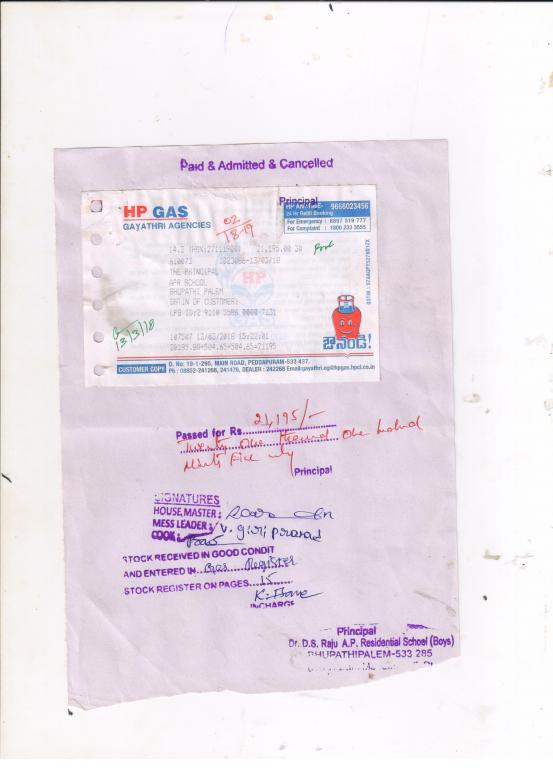 Paid & Admitted & Cancelled
Principal
HP GAS
GAYATHRI AGENCIES
HP ANYTIME- 9666023456
24 Hr Refill Booking
For Emergency : 8897 519 777
For Complaint : 1800 233 3555
02
18-19
14.2 (HSN:27111900) 21,195.00 30
610073 1023086-13/03/18
THE PRINCIPAL
APR SCHOOL
BHUPATHI PALEM
GSTIN OF CUSTOMER:
HP
13/3/18
107507 13/03/2018 15:22:01
20185.80+504.65+504.65=21195
ఔనండి!
CUSTOMER COPY
D. No: 19-1-295, MAIN ROAD, PEDDAPURAM-533 437.
Ph : 08852-241268, 241476, DEALER : 242268 Email:gayathri.ag@hpgas.hpcl.co.in
Passed for Rs. 21,195/-
Twenty One thousand One hundred
Ninty Five only
Principal
SIGNATURES
HOUSE, MASTER :
MESS LEADER : V. giri prasad
COOK :
STOCK RECEIVED IN GOOD CONDIT
AND ENTERED IN Gas Register
STOCK REGISTER ON PAGES 15
INCHARGE
Principal
Dr. D.S. Raju A.P. Residential School (Boys)
BHUPATHIPALEM-533 285